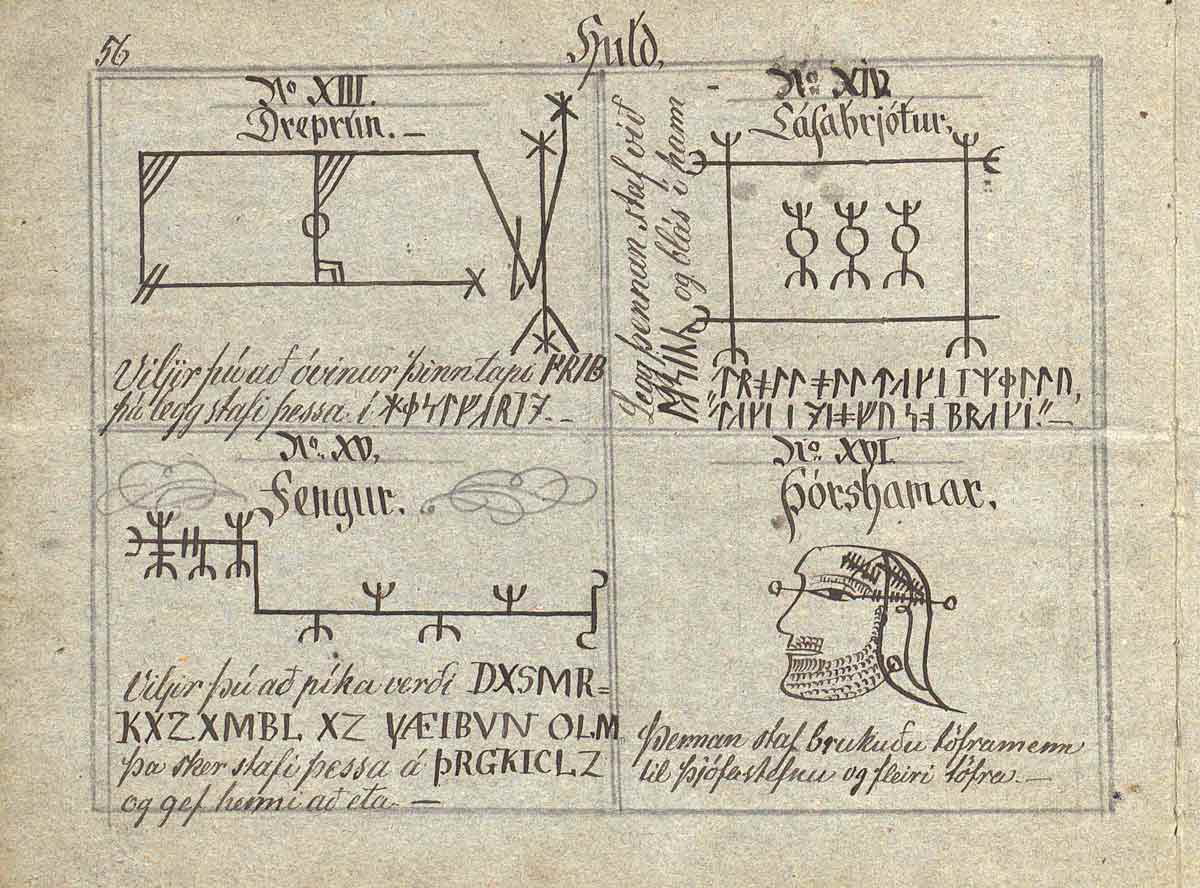 56
Huld,
No XIII.
Dreprún. —
Viljir þú að óvinur þinn tapi
þá legg stafi þessa í
No. XIV.
Lásabrjótur,
Legg þennan staf við
og blás í hann
No. XV,
Fengur.
Viljir þú að píka verði DXSMR=
KXZ XMBL XZ OLM
Þa sker stafi þessa á ÞRGKICLZ
og gef henni að eta. —
No. XVI.
Þórshamar.
Þennan staf brukuðu töframenn
til þjófastefnu og fleiri töfra. —